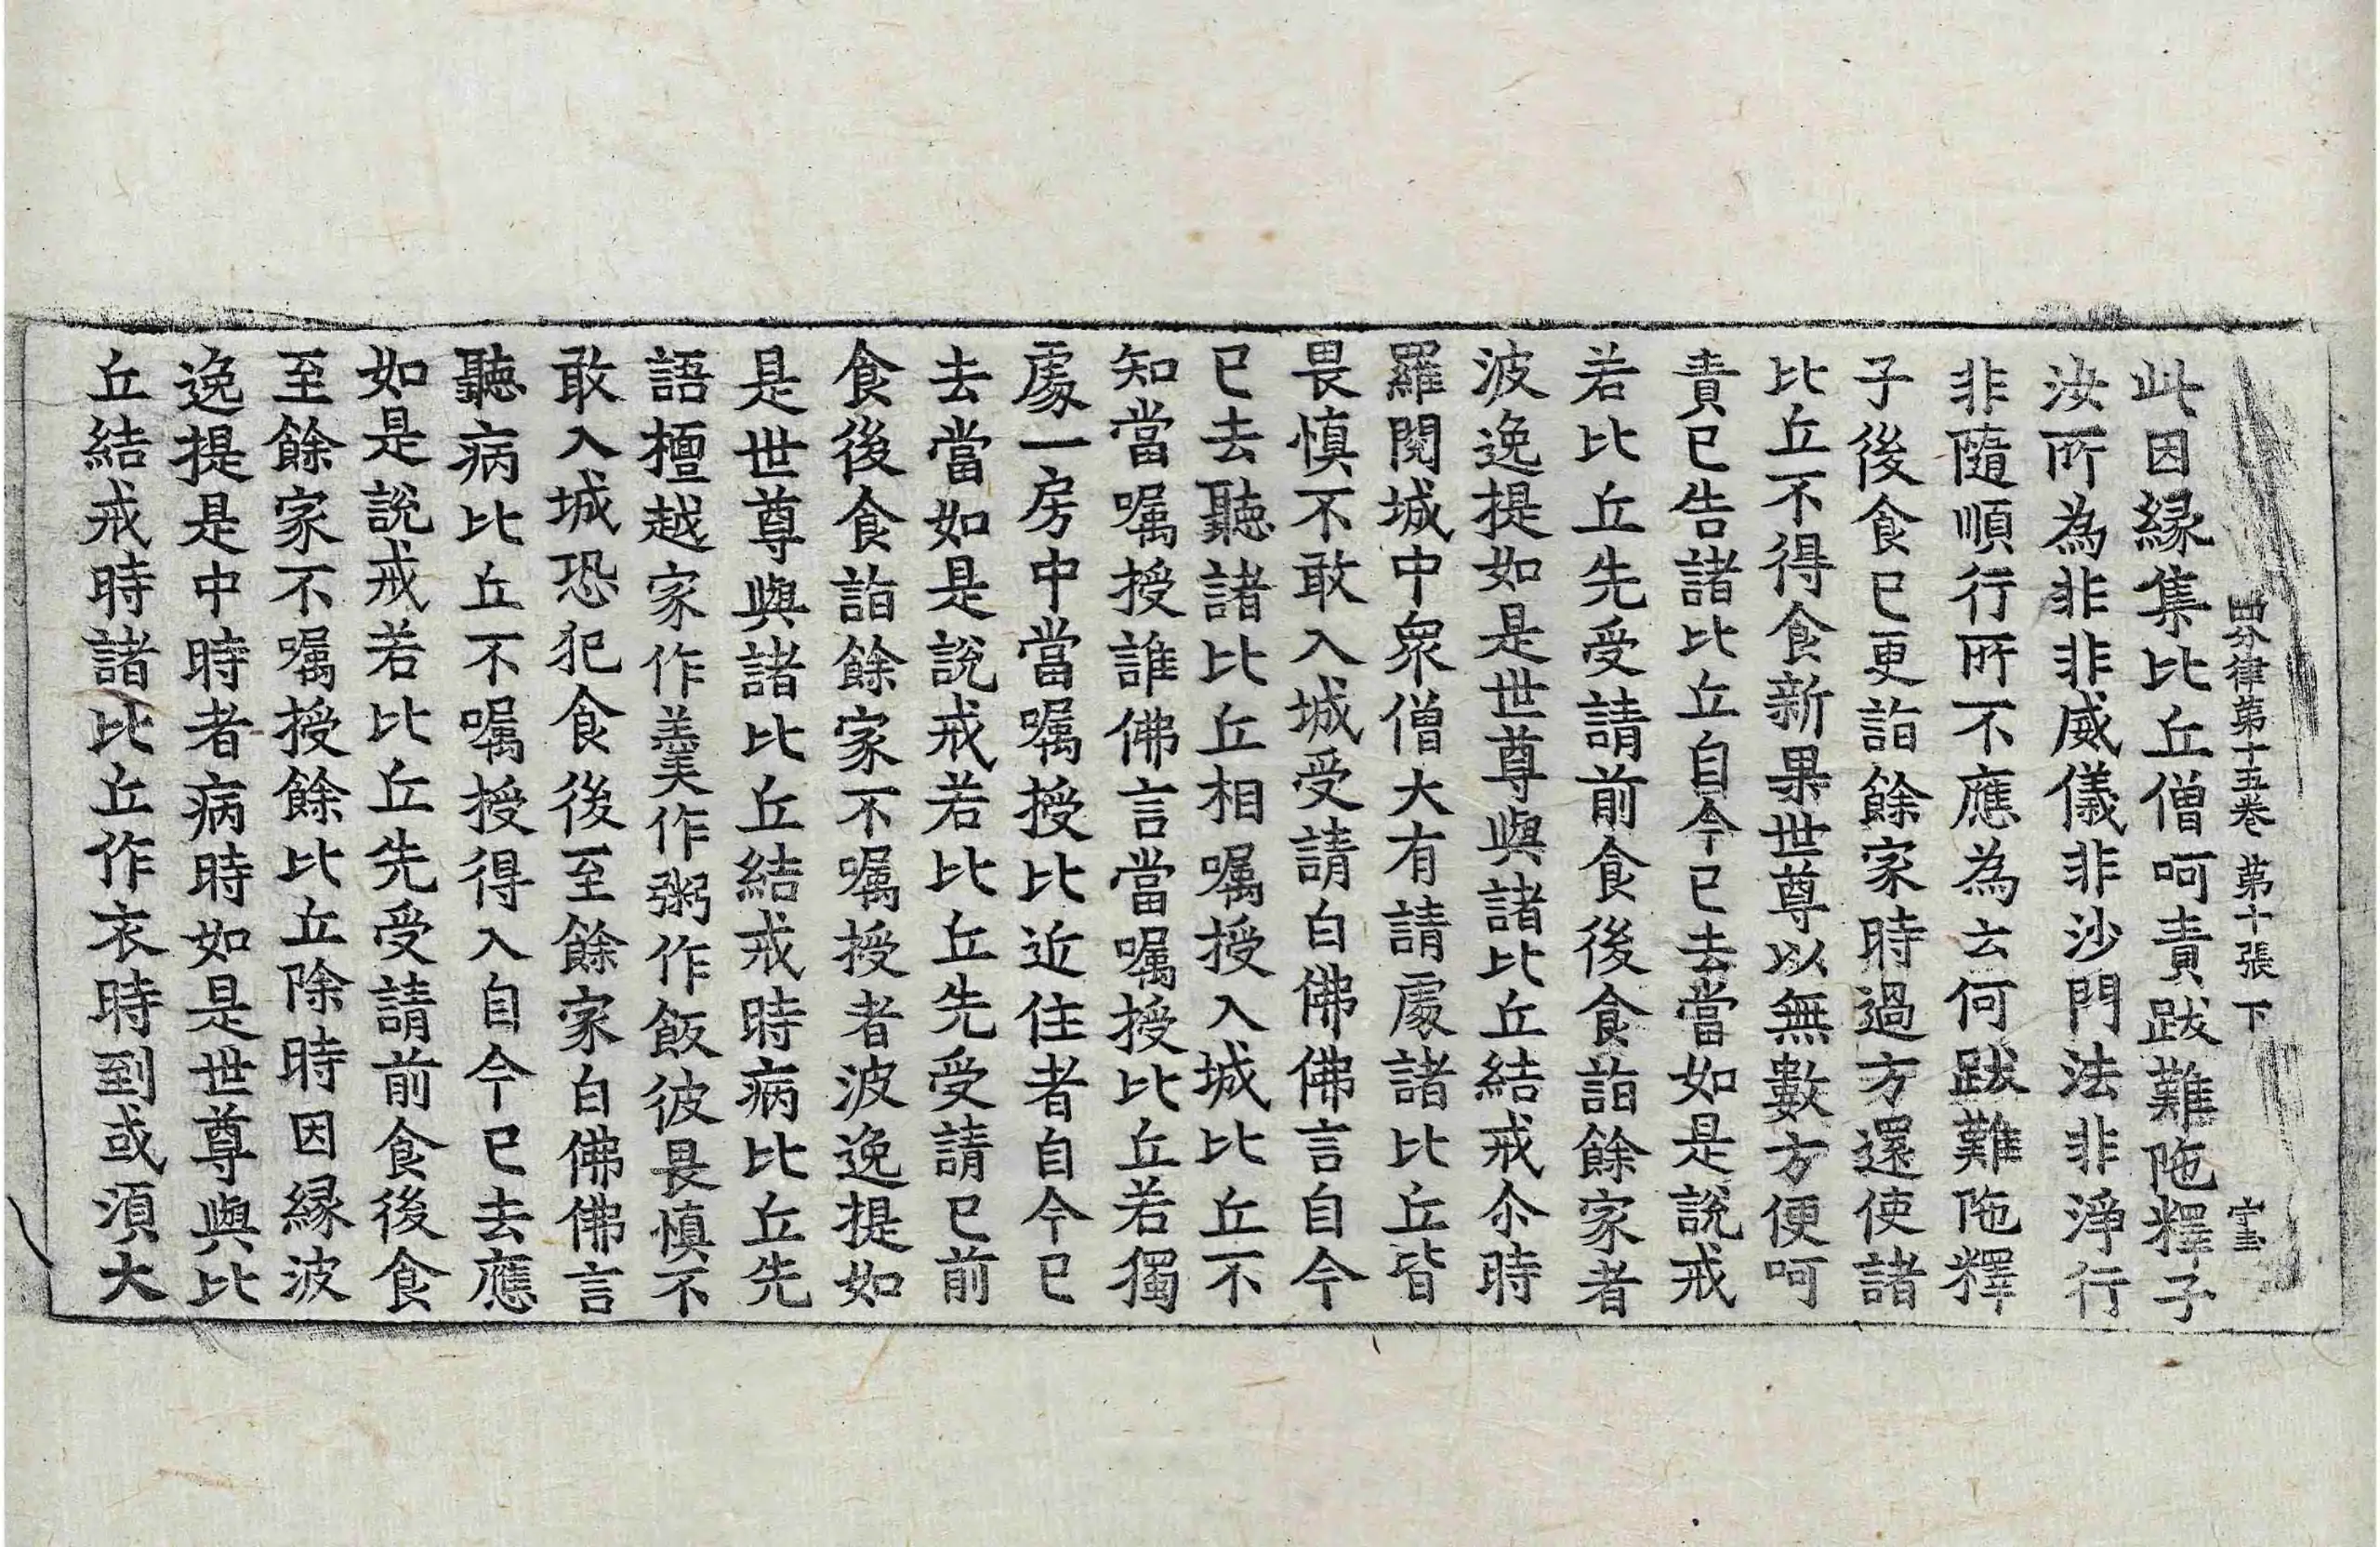 四分律第十五卷 第十張 下
此因緣集比丘僧呵責跋難陁釋子
汝所為非非威儀非沙門法非淨行
非隨順行所不應為云何跋難陁釋
子後食已更詣餘家時過方還使諸
比丘不得食新果世尊以無數方便呵
責已告諸比丘自今已去當如是說戒
若比丘先受請前食後食詣餘家者
波逸提如是世尊與諸比丘結戒尒時
羅閱城中衆僧大有請處諸比丘皆
畏慎不敢入城受請白佛佛言自今
已去聽諸比丘相囑授入城比丘不
知當囑授誰佛言當囑授比丘若獨
處一房中當囑授比近住者自今已
去當如是說戒若比丘先受請已前
食後食詣餘家不囑授者波逸提如
是世尊與諸比丘結戒時病比丘先
語檀越家作羹作粥作飯彼畏慎不
敢入城恐犯食後至餘家白佛佛言
聽病比丘不囑授得入自今已去應
如是說戒若比丘先受請前食後食
至餘家不囑授餘比丘除時因緣波
逸提是中時者病時如是世尊與比
丘結戒時諸比丘作衣時到或須大